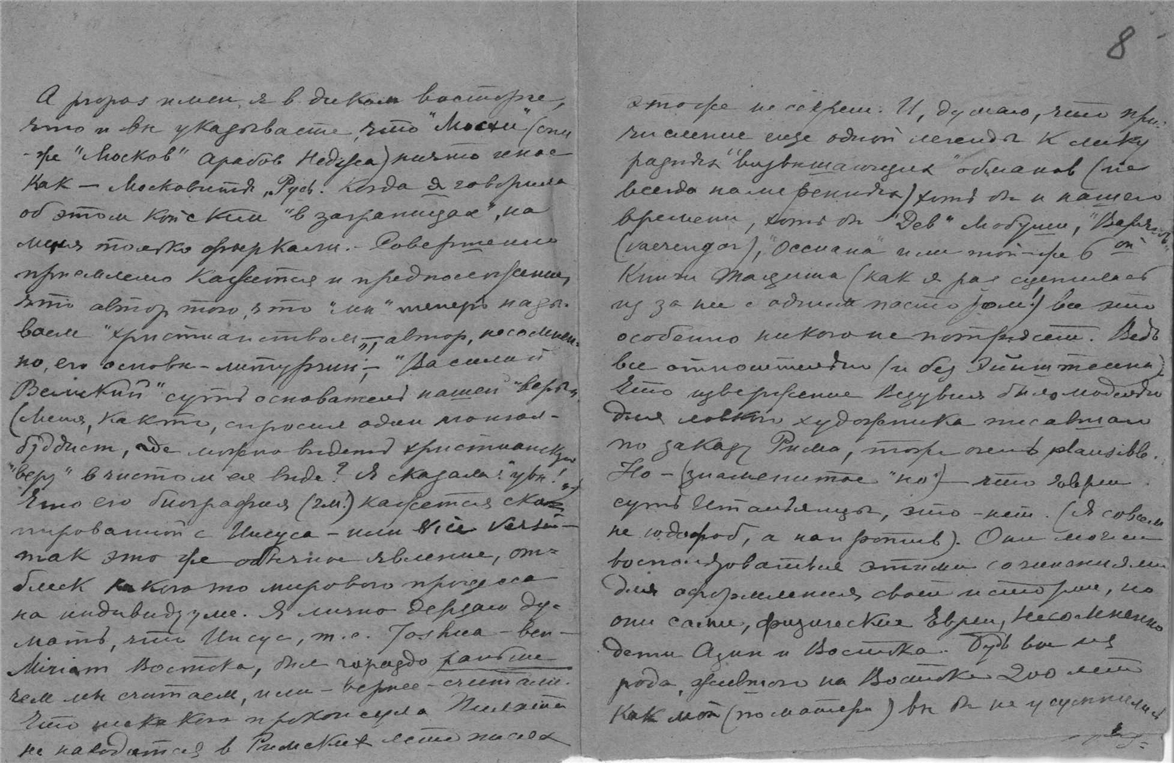 8
А propos имен, я в диком восторге,
что и вы указываете, что "Мосхи" (они
же "Москов" Арабов Неджа) ничто иное
как — Московиты, Русь. Когда я говорила
об этом кой с кем "в заграницах", на
меня только фыркали. — Совершенно
приемлемо кажется и предположение,
что автор того, что "мы" теперь назы-
ваем "христианством", — автор, несомнен-
но, его основы — литургии, — "Василий
Великий" суть основатель нашей "веры"
(меня, как-то, спросил один монгол-
буддист, где можно видеть христианскую
"веру" в чистом ея виде? Я сказала: "увы!"
Что его биография (гм!) кажется ско-
пированной с Иисуса — или vice versa —
так это же обычное явление, от-
блеск какого-то мирового процесса
на индивидууме. Я лично дерзаю ду-
мать, что Иисус, т.е. Joshua-ben-
Miriam Востока, был гораздо раньше
чем мы считаем, или — вернее — считали.
Что никакого проконсула Пилата
не находится в Римских летописях
это же не секрет. И, думаю, что при-
числение еще одной легенды к лику
разных "возвышающих" обманов (не
всегда намеренных) хоть бы и нашего
времени, хоть бы "Дев" Мобушо, "Варягов"
(vaerengar), "Оссиана" или той-же 6ой
Книги Тацита (как я раз сцепилась
из за нее с одним пастором!) все это
особенно никого не потрясет. Ведь
все относительно (и без Эйнштейна)
Что извержение Везувия было моделью
для ловкого художника писавшего
по заказу Рима, тоже очень plausible.
Но — (знаменитое "но") — что Евреи
суть Итальянцы, это — нет. (Я совсем
не юдофоб, а напротив). Они могли
воспользоваться этими сочинениями
для оформления своей истории, но
они сами, физические Евреи, несомненно
дети Азии и Востока. Будь вы из
рода, жившего на Востоке 200 лет
как мой (по матери) вы бы не усумнились